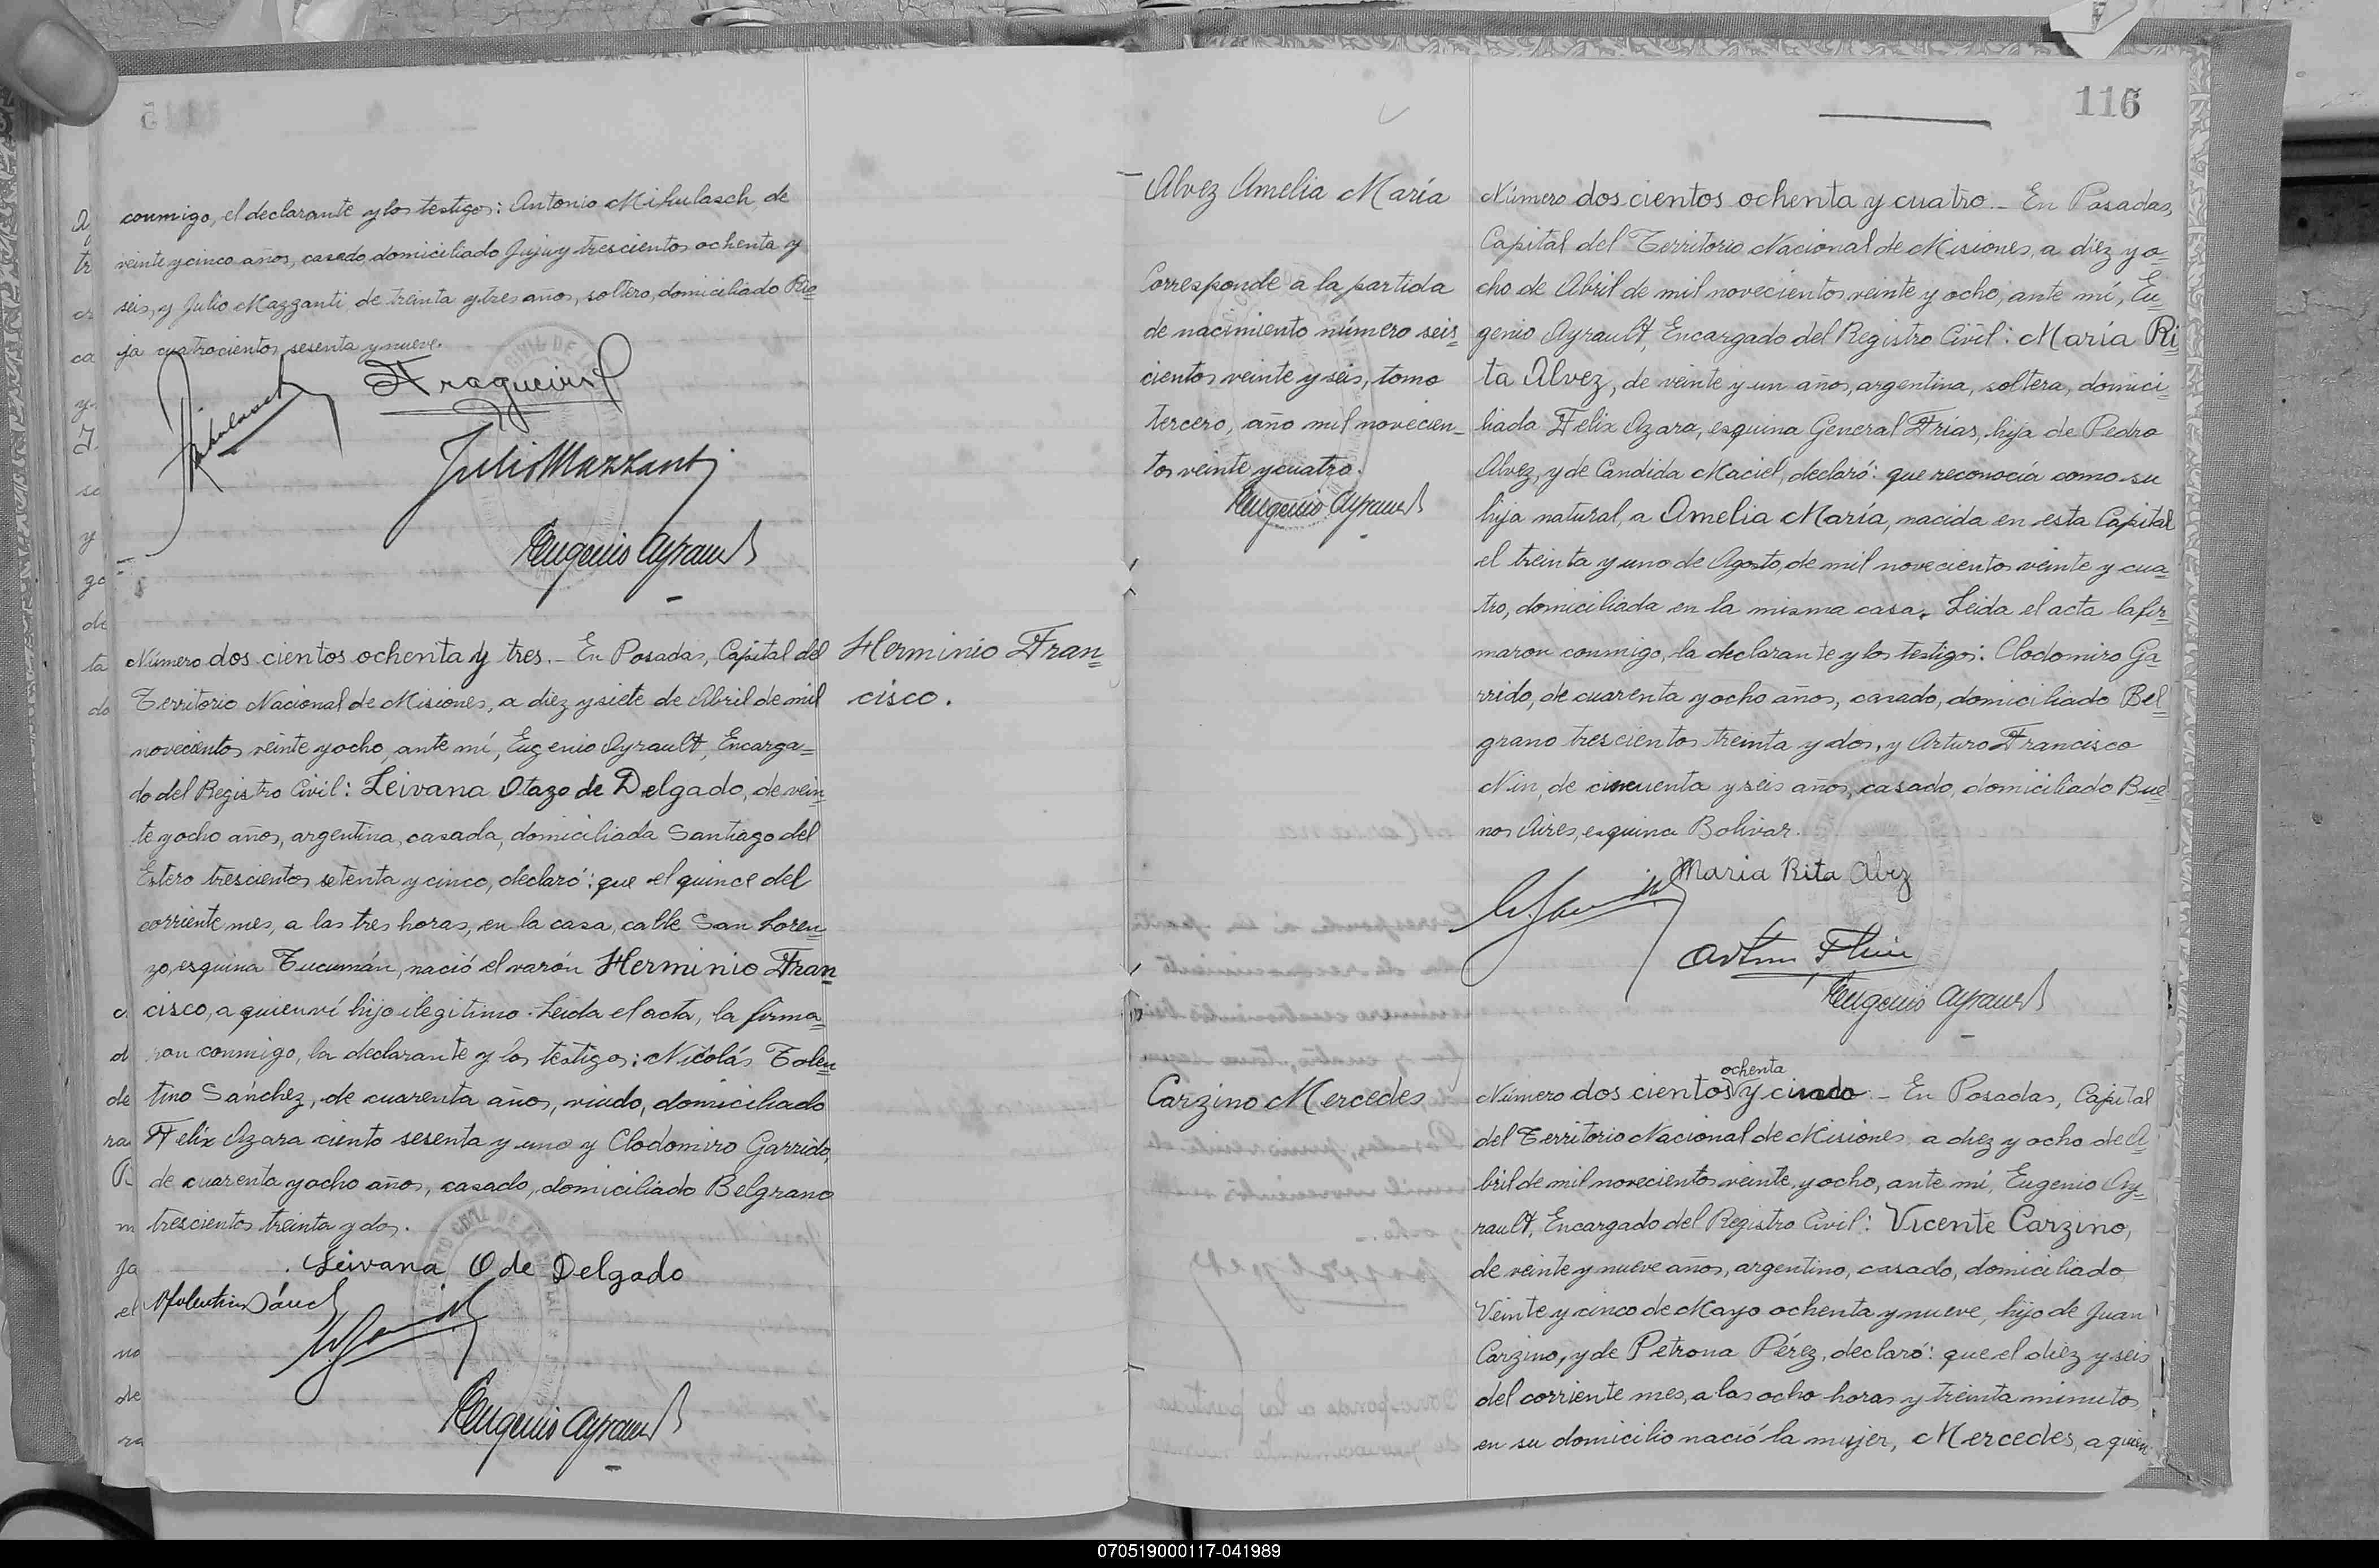 conmigo, el declarante y los testigos: Antonio Mikulasch, de
veinte y cinco años, casado domiciliado Jujuy trescientos ochenta y
seis, y Julio Mazzanti de treinta y tres años, soltero, domiciliado Rio=
ja cuatrocientos sesenta y nueve.
Julio Mazzanti
Eugenio Ayrault
Número dos cientos ochenta y tres.- En Posadas, Capital del
Territorio Nacional de Misiones, a diez y siete de Abril de mil
novecientos veinte y ocho, ante mí, Eugenio Ayrault, Encarga=
do del Registro Civil: Leivana Otazo de Delgado, de vein=
te y ocho años, argentina, casada, domiciliada Santiago del
Estero trescientos setenta y cinco, declaró: que el quince del
corriente mes, a las tres horas, en la casa, calle San Loren=
zo, esquina Tucumán, nació el varón Herminio Fran=
cisco, a quien ví hijo ilegitimo. Leida el acta, la firma=
ron conmigo, la declarante y los testigos: Nicolás Tolen=
tino Sánchez, de cuarenta años, viudo, domiciliado
Felix Azara ciento sesenta y uno y Clodomiro Garrido,
de cuarenta y ocho años, casado, domiciliado Belgrano
trescientos treinta y dos.
Leivana O de Delgado
Eugenio Ayrault
Herminio Fran=
cisco.
116
Alvez Amelia María
Corresponde a la partida
de nacimiento número seis=
cientos veinte y seis, tomo
tercero, año mil novecien=
tos veinte y cuatro.
Eugenio Ayrault
Número dos cientos ochenta y cuatro.- En Posadas,
Capital del Territorio Nacional de Misiones, a diez y o=
cho de Abril de mil novecientos veinte y ocho, ante mí, Eu=
genio Ayrault, Encargado del Registro Civil: María Ri=
ta Alvez, de veinte y un años, argentina, soltera, domici=
liada Felix Azara, esquina General Frías, hija de Pedro
Alvez, y de Candida Maciel, declaró: que reconocía como su
hija natural, a Amelia María, nacida en esta Capital
el treinta y uno de Agosto, de mil novecientos veinte y cua=
tro, domiciliada en la misma casa. Leida el acta la fir=
maron conmigo, la declarante y los testigos: Clodomiro Ga=
rrido, de cuarenta y ocho años, casado, domiciliado Bel=
grano trescientos treinta y dos, y Arturo Francisco
Nin, de cincuenta y seis años, casado, domiciliado Bue=
nos Aires, esquina Bolivar.
Maria Rita Alvez
Eugenio Ayrault
Carzino Mercedes
ochenta
Número dos cientos y cinco.- En Posadas, Capital
del Territorio Nacional de Misiones, a diez y ocho de A=
bril de mil novecientos veinte y ocho, ante mí, Eugenio Ay=
rault, Encargado del Registro Civil: Vicente Carzino,
de veinte y nueve años, argentino, casado, domiciliado
Veinte y cinco de Mayo ochenta y nueve, hijo de Juan
Carzino, y de Petrona Pérez, declaró: que el diez y seis
del corriente mes, a las ocho horas y treinta minutos,
en su domicilio nació la mujer, Mercedes, a quien
070519000117-041989